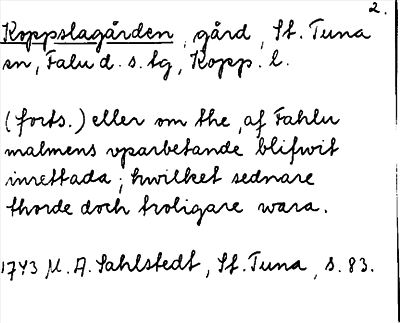 2.
Kopps­lagården, gård, St. Tuna
sn, Falu d. s. tg, Kopp. l.
(forts.) eller om the, af Fahlu
malmens uparbetande blifwit
inrettada; hwilket sednare
thorde doch troligare wara.
1743 M. A. Sahlstedt, St. Tuna, s. 83.